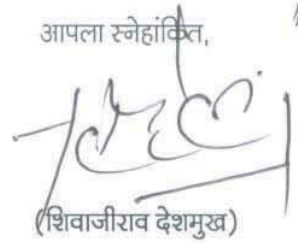 आपला स्नेहांकित,
(शिवाजीराव देशमुख)